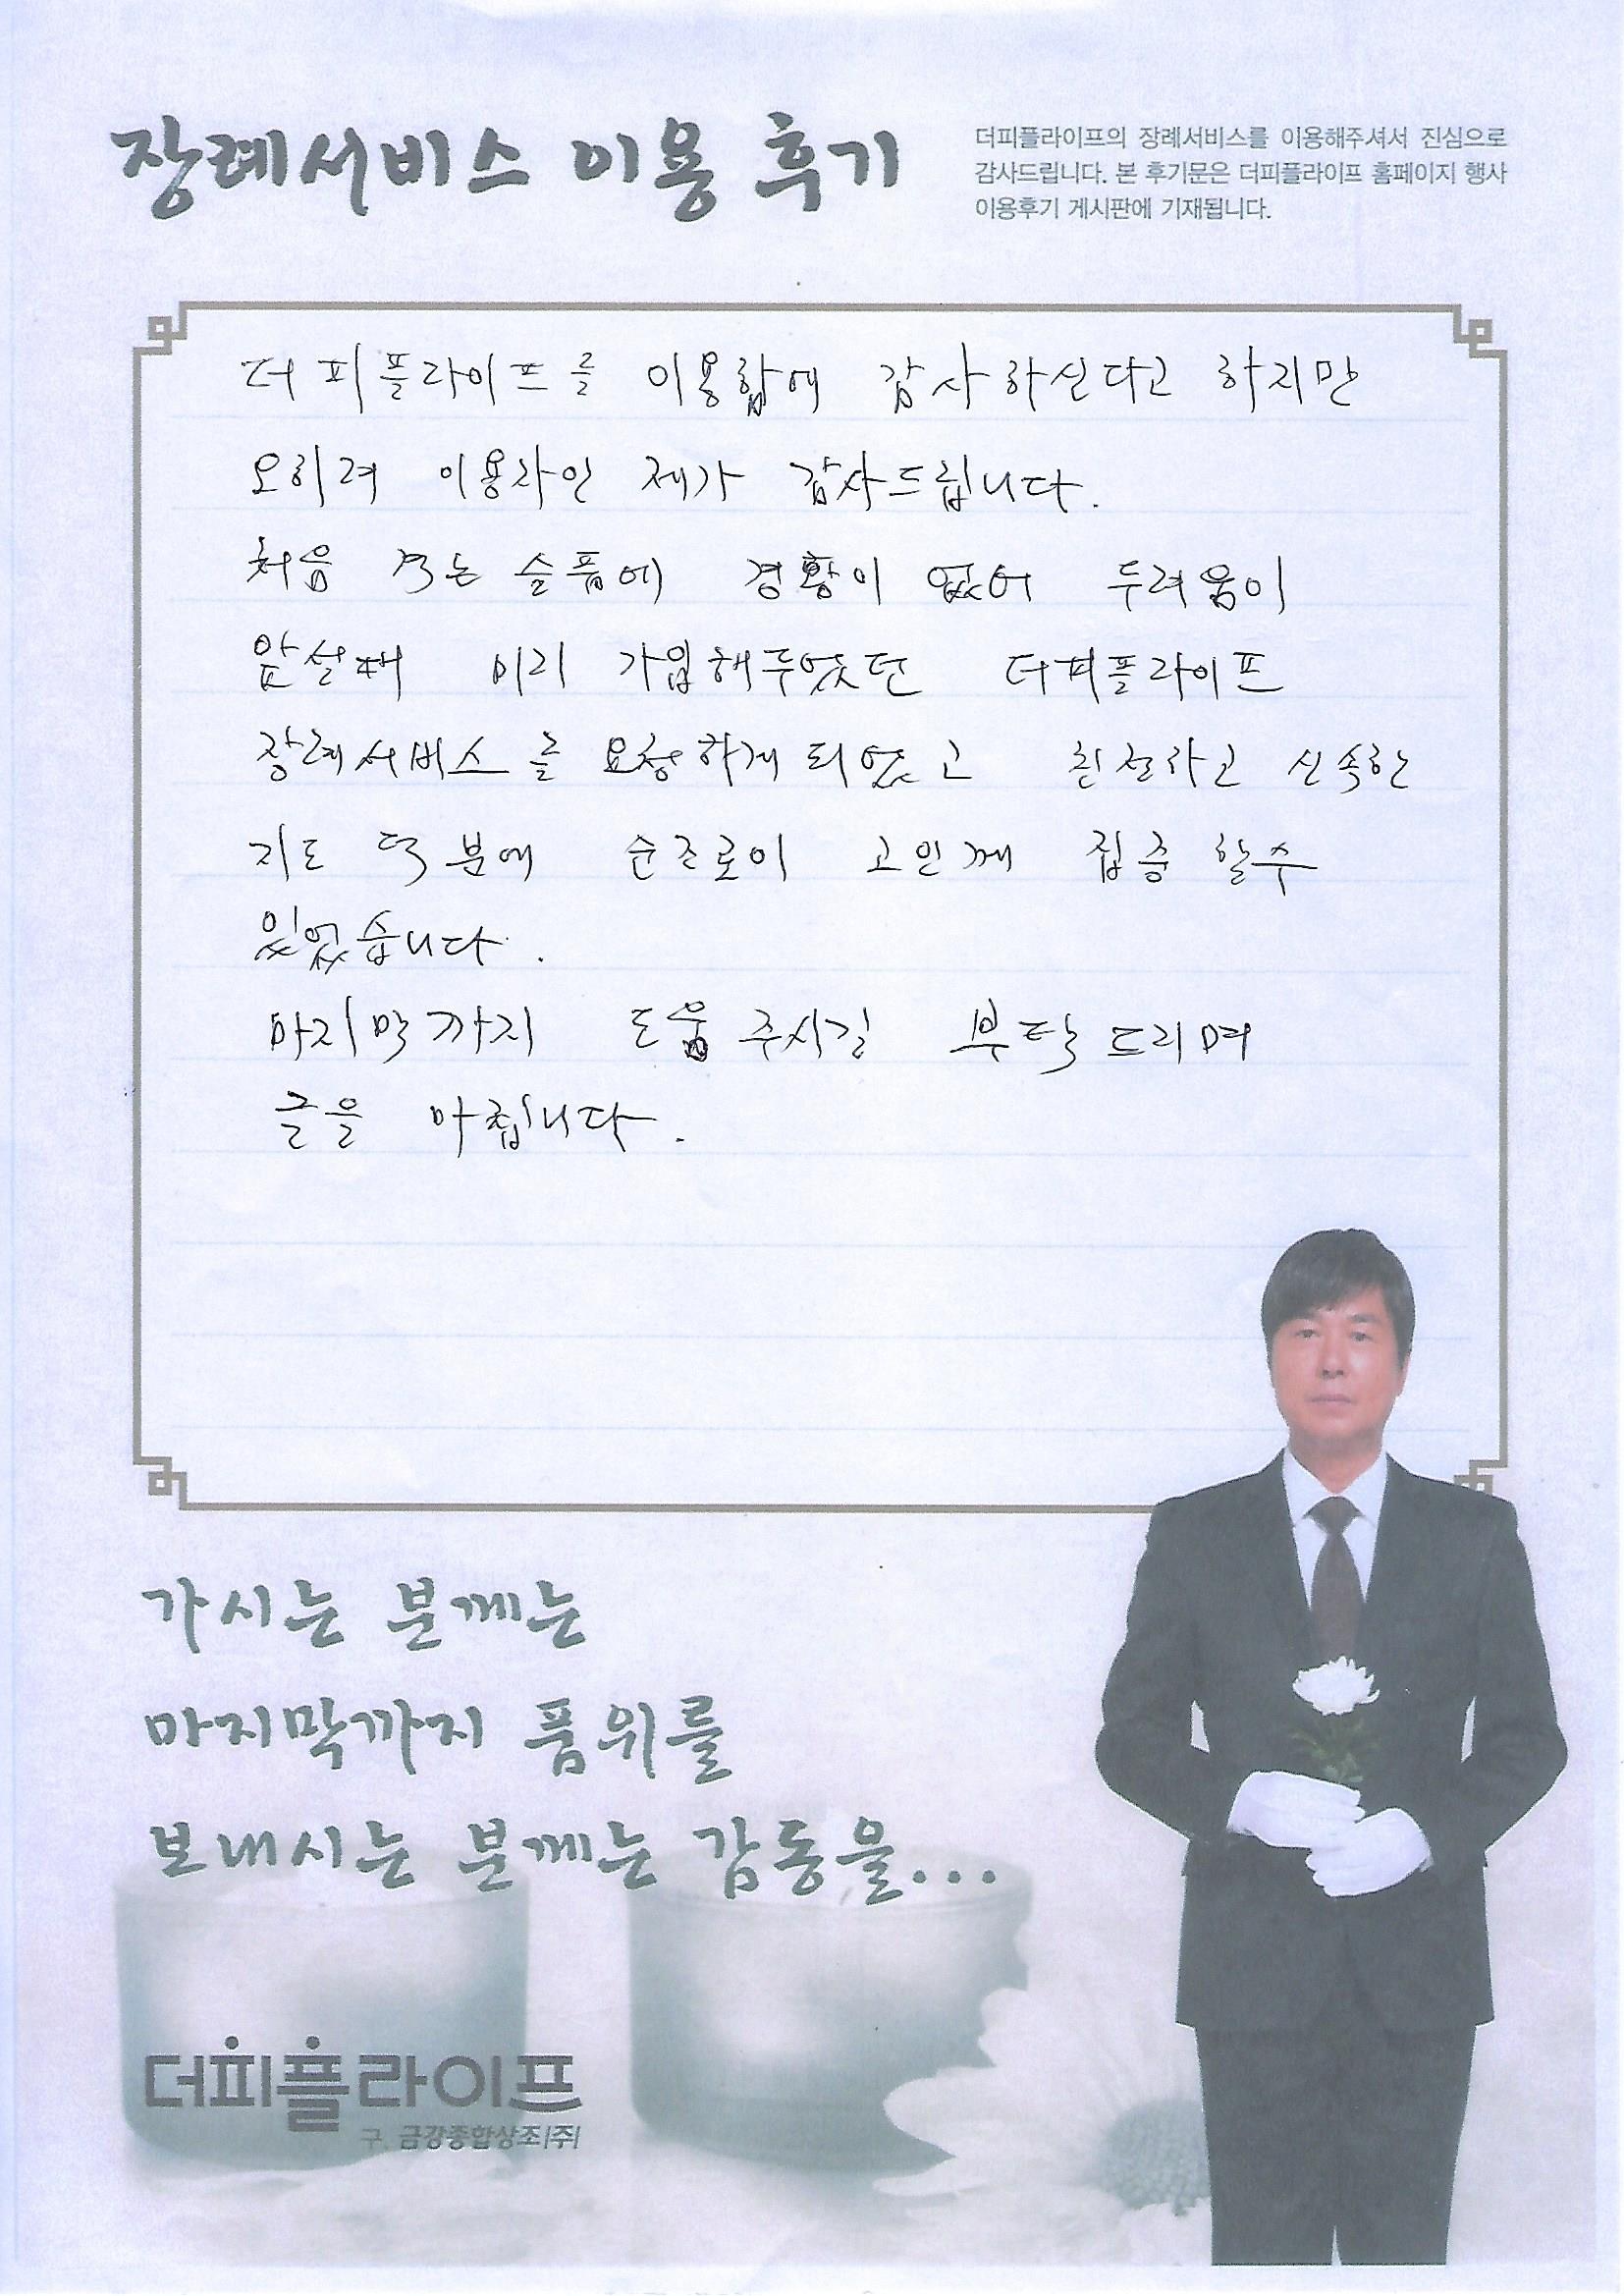 장례서비스 이용 후기
더피플라이프의 장례서비스를 이용해주셔서 진심으로
감사드립니다. 본 후기문은 더피플라이프 홈페이지 행사
이용후기 게시판에 기재됩니다.
더피플라이프를 이용함에 감사하신다고 하지만
오히려 이용자인 제가 감사드립니다.
처음 겪는 슬픔에 경황이 없어 두려움이
앞설때 미리 가입해두었던 더피플라이프
장례서비스를 요청하게 되었고 친절하고 신속한
지도 덕분에 순조로이 고인께 집중 할수
있었습니다.
마지막까지 도움 주시길 부탁드리며
글을 마칩니다.
가시는 분께는
마지막까지 품위를
보내시는 분께는 감동을...
더피플라이프
구. 금강종합상조(주)